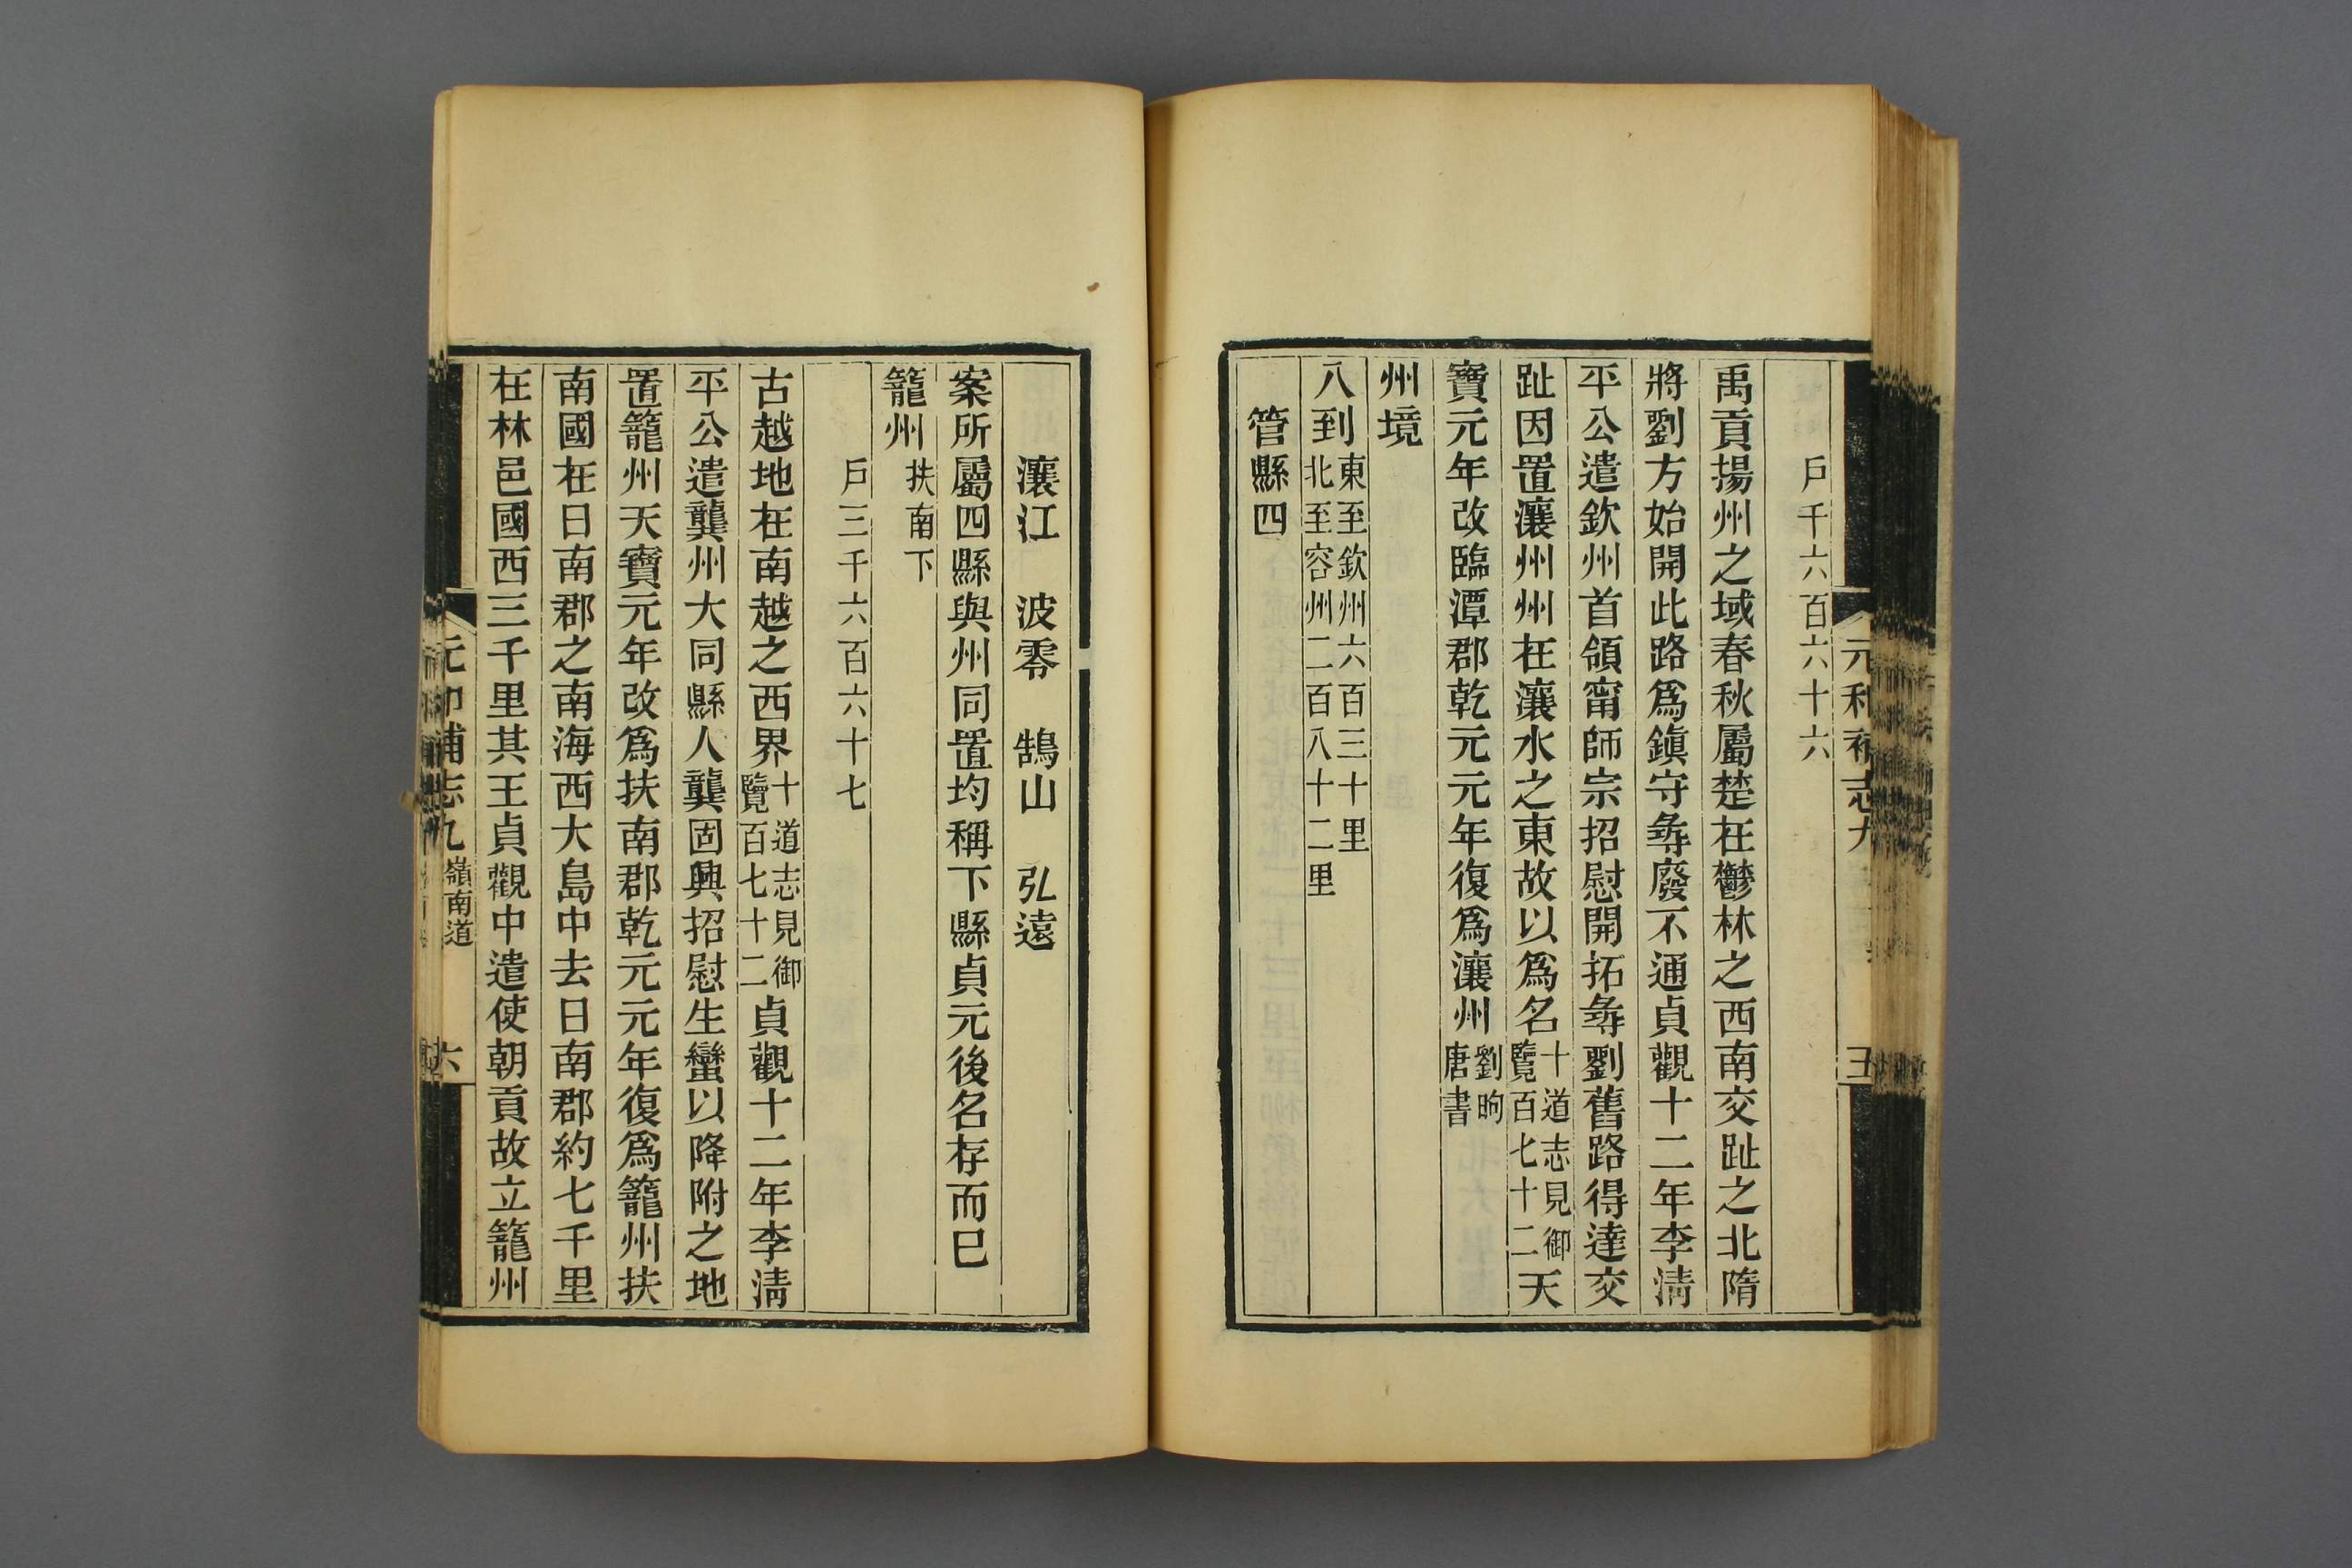 戶千六百六十六
禹貢揚州之域春秋屬楚在鬱林之西南交趾之北隋
將劉方始開此路爲鎭守彝廢不通貞觀十二年李淸
平公遣欽州首領甯師宗招慰開拓彝劉舊路得達交
趾因置瀼州州在瀼水之東故以爲名十道志見御覽百七十二天
寶元年改臨潭郡乾元元年復爲瀼州劉昫唐書
州境
八到東至欽州六百三十里北至容州二百八十二里
管縣四
瀼江 波零 鵠山 弘遠
案所屬四縣與州同置均稱下縣貞元後名存而巳
籠州扶南下
戶三千六百六十七
古越地在南越之西界十道志見御覽百七十二貞觀十二年李淸
平公遣龔州大同縣人龔固興招慰生蠻以降附之地
置籠州天寶元年改爲扶南郡乾元元年復爲籠州扶
南國在日南郡之南海西大島中去日南郡約七千里
在林邑國西三千里其王貞觀中遣使朝貢故立籠州
志九嶺南道
六